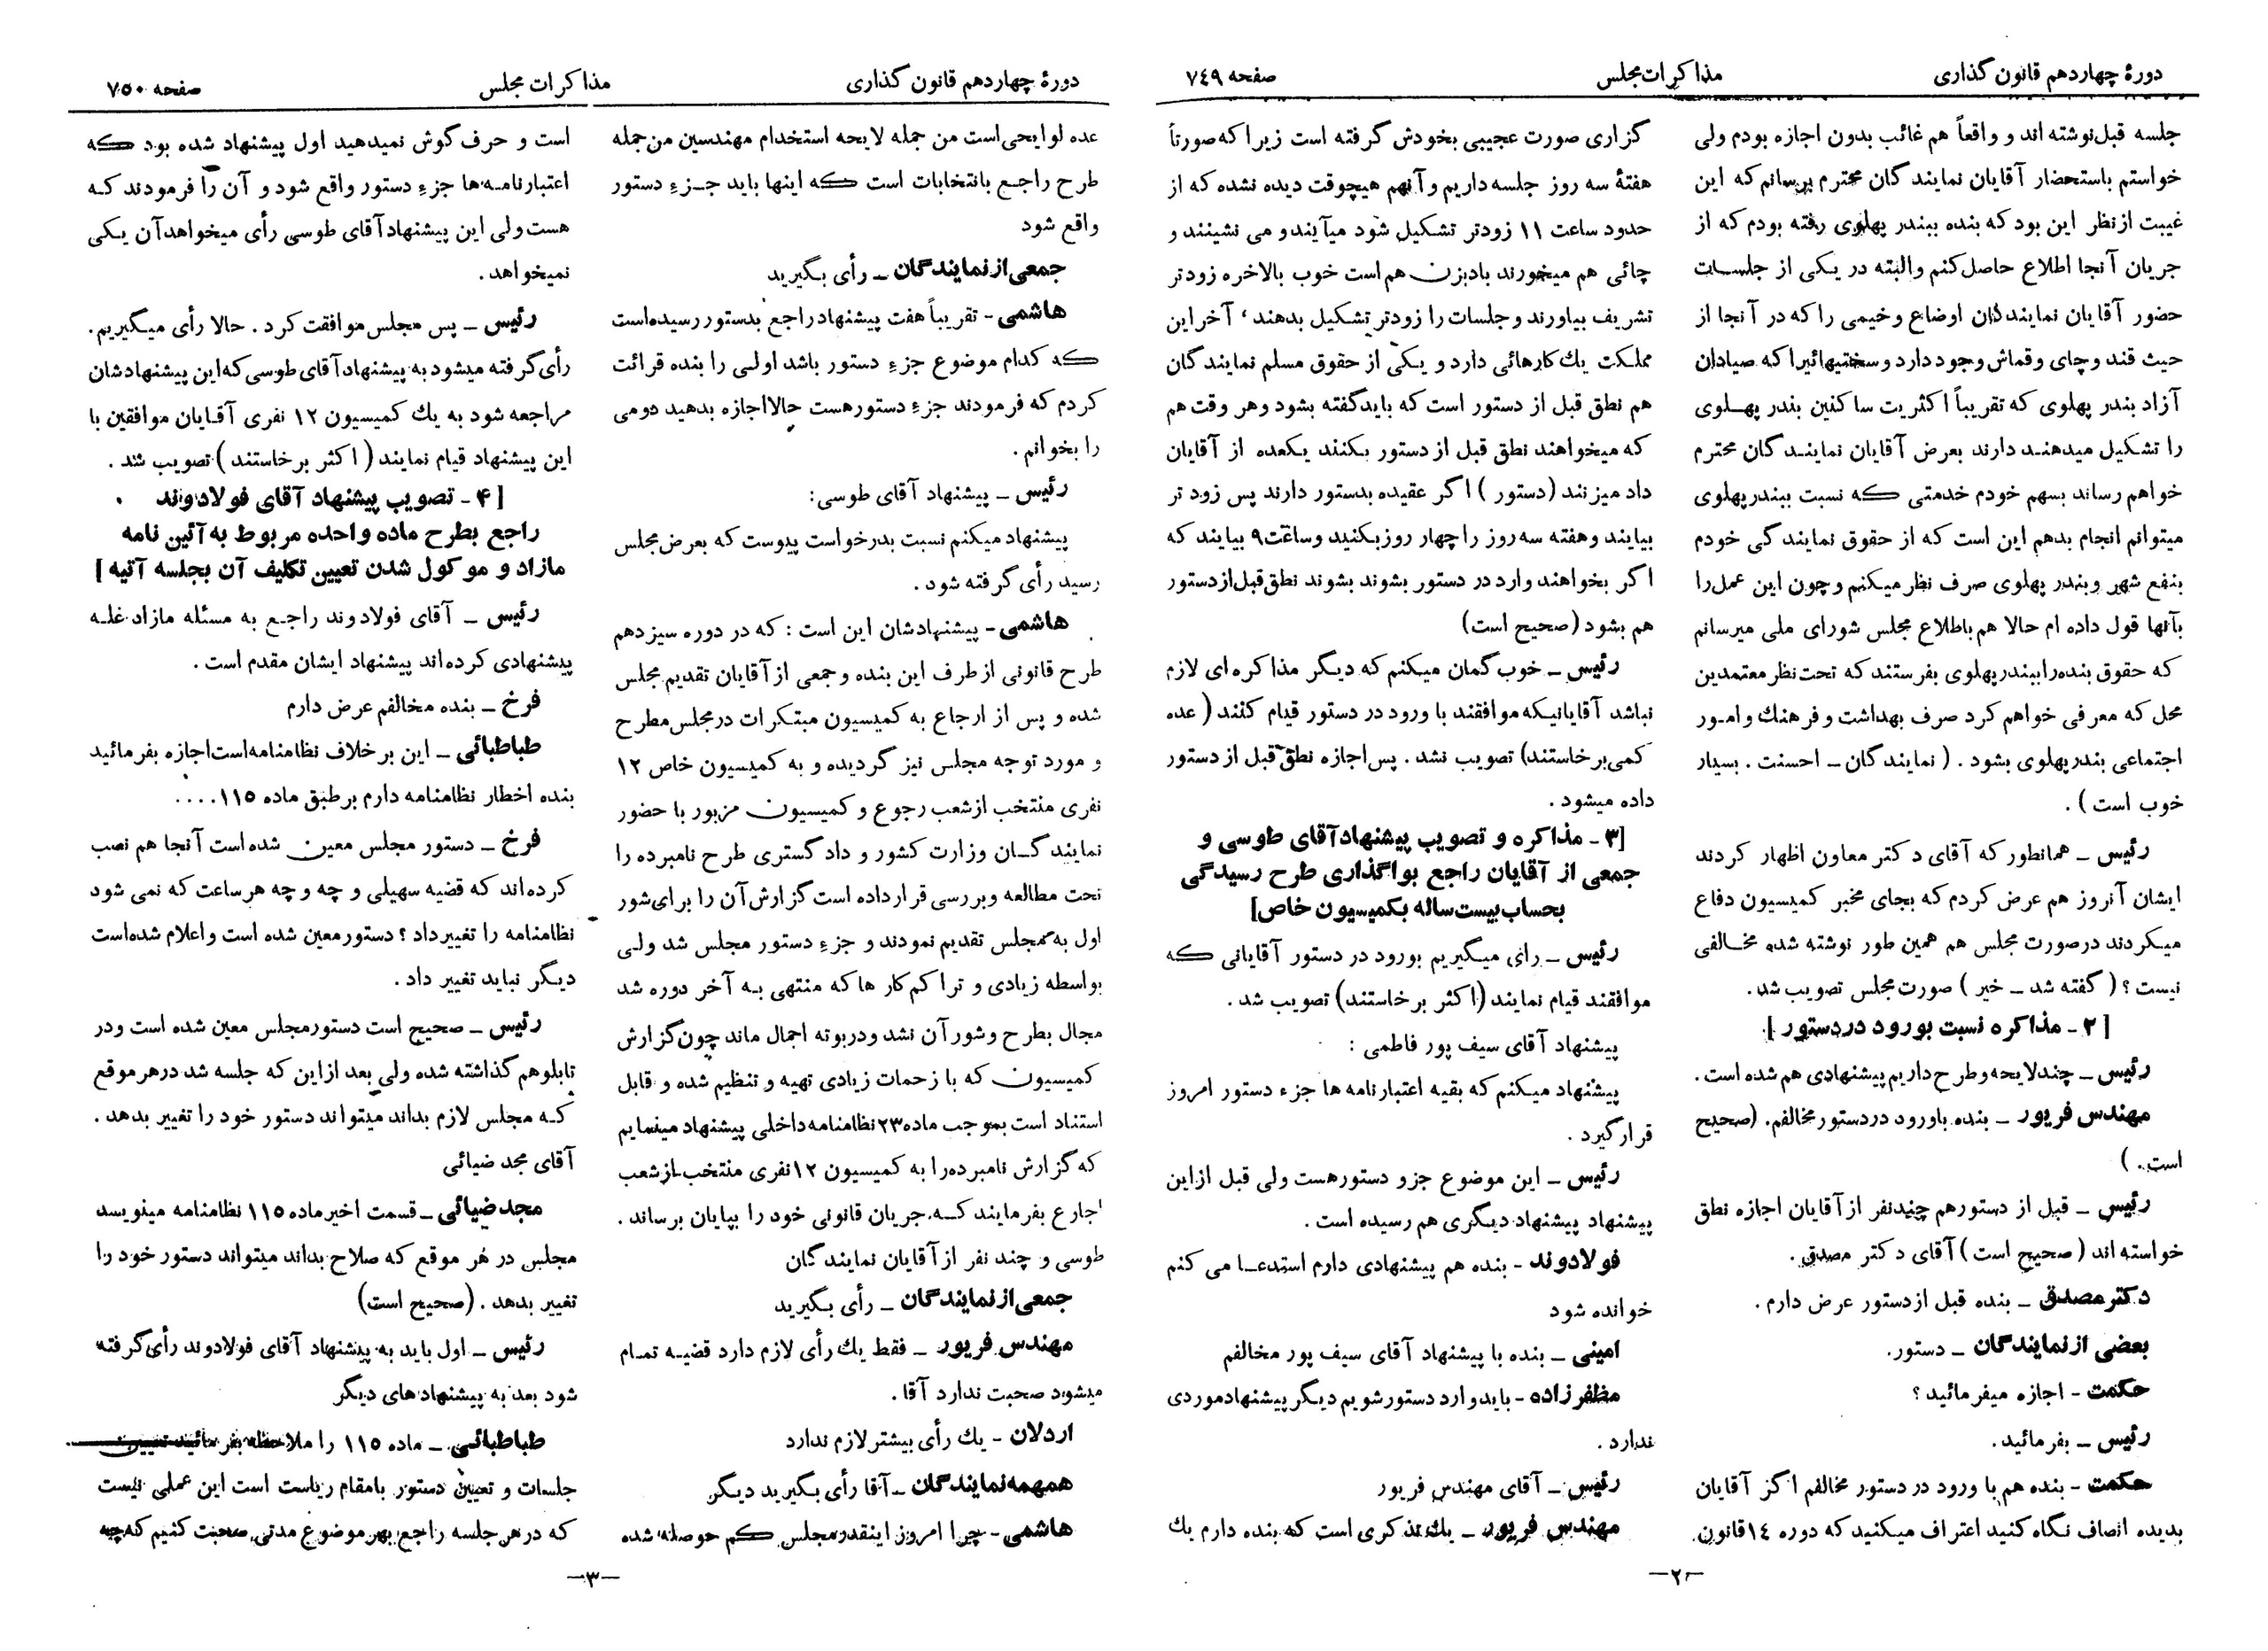 دورهٔ چهاردهم قانون گذاری
مذاکرات مجلس
صفحه ۷٤۹
جلسه قبل نوشته اند و واقعاً هم غائب بدون اجازه بودم ولی
خواستم باستحضار آقایان نمایندگان محترم برسانم که این
غیبت از نظر این بود که بنده ببندر پهلوی رفته بودم که از
جریان آنجا اطلاع حاصل کنم والبته در یکی از جلسات
حضور آقایان نمایندگان اوضاع وخیمی را که در آنجا از
حیث قند و چای وقماش وجود دارد و سختیهائیرا که صیادان
آزاد بندر پهلوی که تقریباً اکثریت ساکنین بندر پهلوی
را تشکیل میدهند دارند بعرض آقایان نمایندگان محترم
خواهم رساند بسهم خودم خدمتی که نسبت ببندر پهلوی
میتوانم انجام بدهم این است که از حقوق نمایندگی خودم
بنفع شهر وبندر پهلوی صرف نظر میکنم وچون این عمل را
بآنها قول داده ام حالا هم باطلاع مجلس شورای ملی میرسانم
که حقوق بنده را ببندر پهلوی بفرستند که تحت نظر معتمدین
محل که معرفی خواهم کرد صرف بهداشت و فرهنك و امور
اجتماعی بندر پهلوی بشود . ( نمایندگان ـ احسنت . بسیار
خوب است ) .
رئیس ـ همانطور که آقای دکتر معاون اظهار کردند
ایشان آنروز هم عرض کردم که بجای مخبر کمیسیون دفاع
میکردند درصورت مجلس هم همین طور نوشته شده مخالفی
نیست ؟ ( گفته شد ـ خیر ) صورت مجلس تصویب شد.
[ ۲ ـ مذاکره نسبت بورود در دستور ]
رئیس ـ چند لایحه و طرح داریم پیشنهادی هم شده است.
مهندس فریور ـ بنده باورود در دستور مخالفم. (صحیح
است. )
رئیس ـ قبل از دستورهم چند نفر از آقایان اجازه نطق
خواسته اند ( صحیح است ) آقای دکتر مصدق.
دکتر مصدق ـ بنده قبل از دستور عرض دارم .
بعضی از نمایندگان ـ دستور.
حکمت ـ اجازه میفرمائید ؟
رئیس ـ بفرمائید.
حکمت ـ بنده هم با ورود در دستور مخالفم اگر آقایان
بدیده انصاف نگاه کنید اعتراف میکنید که دوره ۱٤ قانون
گزاری صورت عجیبی بخودش گرفته است زیرا که صورتاً
هفتهٔ سه روز جلسه داریم و آنهم هیچوقت دیده نشده که از
حدود ساعت ۱۱ زودتر تشکیل شود میآیند و می نشینند و
چائی هم میخورند بادبزن هم است خوب بالاخره زودتر
تشریف بیاورند و جلسات را زودتر تشکیل بدهند ، آخر این
مملکت یك کارهائی دارد و یکی از حقوق مسلم نمایندگان
هم نطق قبل از دستور است که باید گفته بشود وهر وقت هم
که میخواهند نطق قبل از دستور بکنند یکعده از آقایان
داد میزنند (دستور ) اگر عقیده بدستور دارند پس زودتر
بیایند وهفته سه روز را چهار روز بکنید وساعت ۹ بیایند که
اگر بخواهند وارد در دستور بشوند بشوند نطق قبل از دستور
هم بشود (صحیح است)
رئیس ـ خوب گمان میکنم که دیگر مذاکره ای لازم
نباشد آقایانیکه موافقند با ورود در دستور قیام کنند ( عده
کمی برخاستند) تصویب نشد . پس اجازه نطق قبل از دستور
داده میشود .
[۳ ـ مذاکره و تصویب پیشنهاد آقای طوسی و
جمعی از آقایان راجع بواگذاری طرح رسیدگی
بحساب بیست ساله بکمیسیون خاص]
رئیس ـ رأی میگیریم بورود در دستور آقایانی که
موافقند قیام نمایند (اکثر برخاستند) تصویب شد .
پیشنهاد آقای سیف پور فاطمی :
پیشنهاد میکنم که بقیه اعتبارنامه ها جزء دستور امروز
قرار گیرد .
رئیس ـ این موضوع جزو دستور هست ولی قبل از این
پیشنهاد پیشنهاد دیگری هم رسیده است .
فولادوند ـ بنده هم پیشنهادی دارم استدعا می کنم
خوانده شود
امینی ـ بنده با پیشنهاد آقای سیف پور مخالفم
مظفر زاده ـ باید وارد دستور شویم دیگر پیشنهاد موردی
ندارد .
رئیس ـ آقای مهندس فریور
مهندس فریور ـ یك تذکری است که بنده دارم یك
ـ۲ـ
دورهٔ چهاردهم قانون گذاری
مذاکرات مجلس
صفحه ۷٥۰
عده لوایحی است من جمله لایحه استخدام مهندسین من جمله
طرح راجع بانتخابات است که اینها باید جزء دستور
واقع شود
جمعی از نمایندگان ـ رأی بگیرید
هاشمی ـ تقریباً هفت پیشنهاد راجع بدستور رسیده است
که کدام موضوع جزء دستور باشد اولی را بنده قرائت
کردم که فرمودند جزء دستور هست حالا اجازه بدهید دومی
را بخوانم .
رئیس ـ پیشنهاد آقای طوسی :
پیشنهاد میکنم نسبت بدرخواست پیوست که بعرض مجلس
رسید رأی گرفته شود .
هاشمی ـ پیشنهادشان این است : که در دوره سیزدهم
طرح قانونی از طرف این بنده و جمعی از آقایان تقدیم مجلس
شده و پس از ارجاع به کمیسیون مبتکرات در مجلس مطرح
و مورد توجه مجلس نیز گردیده و به کمیسیون خاص ۱۲
نفری منتخب از شعب رجوع و کمیسیون مزبور با حضور
نمایندگان وزارت کشور و دادگستری طرح نامبرده را
تحت مطالعه وبررسی قرار داده است گزارش آن را برای شور
اول به مجلس تقدیم نمودند و جزء دستور مجلس شد ولی
بواسطه زیادی و تراکم کار ها که منتهی به آخر دوره شد
مجال بطرح و شور آن نشد ودر بوته اجمال ماند چون گزارش
کمیسیون که با زحمات زیادی تهیه و تنظیم شده و قابل
استناد است بموجب ماده ۲۳ نظامنامه داخلی پیشنهاد مینمایم
که گزارش نامبرده را به کمیسیون ۱۲ نفری منتخب از شعب
ارجاع بفرمایند که جریان قانونی خود را بپایان برساند .
طوسی و چند نفر از آقایان نمایندگان
جمعی از نمایندگان ـ رأی بگیرید
مهندس فریور ـ فقط یك رأی لازم دارد قضیه تمام
میشود صحبت ندارد آقا .
اردلان ـ یك رأی بیشتر لازم ندارد
همهمه نمایندگان ـ آقا رأی بگیرید دیگر
هاشمی ـ چرا امروز اینقدر مجلس کم حوصله شده
است و حرف گوش نمیدهید اول پیشنهاد شده بود که
اعتبارنامه ها جزء دستور واقع شود و آن را فرمودند که
هست ولی این پیشنهاد آقای طوسی رأی میخواهد آن یکی
نمیخواهد .
رئیس ـ پس مجلس موافقت کرد . حالا رأی میگیریم.
رأی گرفته میشود به پیشنهاد آقای طوسی که این پیشنهادشان
مراجعه شود به یك کمیسیون ۱۲ نفری آقایان موافقین با
این پیشنهاد قیام نمایند ( اکثر برخاستند ) تصویب شد .
[ ۴ ـ تصویب پیشنهاد آقای فولادوند
راجع بطرح ماده واحده مربوط به آئین نامه
مازاد و موکول شدن تعیین تکلیف آن بجلسه آتیه ]
رئیس ـ آقای فولادوند راجع به مسئله مازاد غله
پیشنهادی کرده اند پیشنهاد ایشان مقدم است .
فرخ ـ بنده مخالفم عرض دارم
طباطبائی ـ این برخلاف نظامنامه است اجازه بفرمائید
بنده اخطار نظامنامه دارم برطبق ماده ۱۱٥ . . . .
فرخ ـ دستور مجلس معین شده است آنجا هم نصب
کرده اند که قضیه سهیلی و چه و چه هر ساعت که نمی شود
نظامنامه را تغییر داد ؟ دستور معین شده است و اعلام شده است
دیگر نباید تغییر داد .
رئیس ـ صحیح است دستور مجلس معین شده است و در
تابلو هم گذاشته شده ولی بعد از این که جلسه شد در هر موقع
که مجلس لازم بداند میتواند دستور خود را تغییر بدهد .
آقای مجد ضیائی
مجد ضیائی ـ قسمت اخیر ماده ۱۱٥ نظامنامه مینویسد
مجلس در هر موقع که صلاح بداند میتواند دستور خود را
تغییر بدهد . (صحیح است)
رئیس ـ اول باید به پیشنهاد آقای فولادوند رأی گرفته
شود بعد به پیشنهادهای دیگر
طباطبائی ـ ماده ۱۱٥ را ملاحظه بفرمائید تعیین
جلسات و تعیین دستور بامقام ریاست است این عملی نیست
که در هر جلسه راجع بهر موضوع مدتی صحبت کنیم که چه
ـ۳ـ